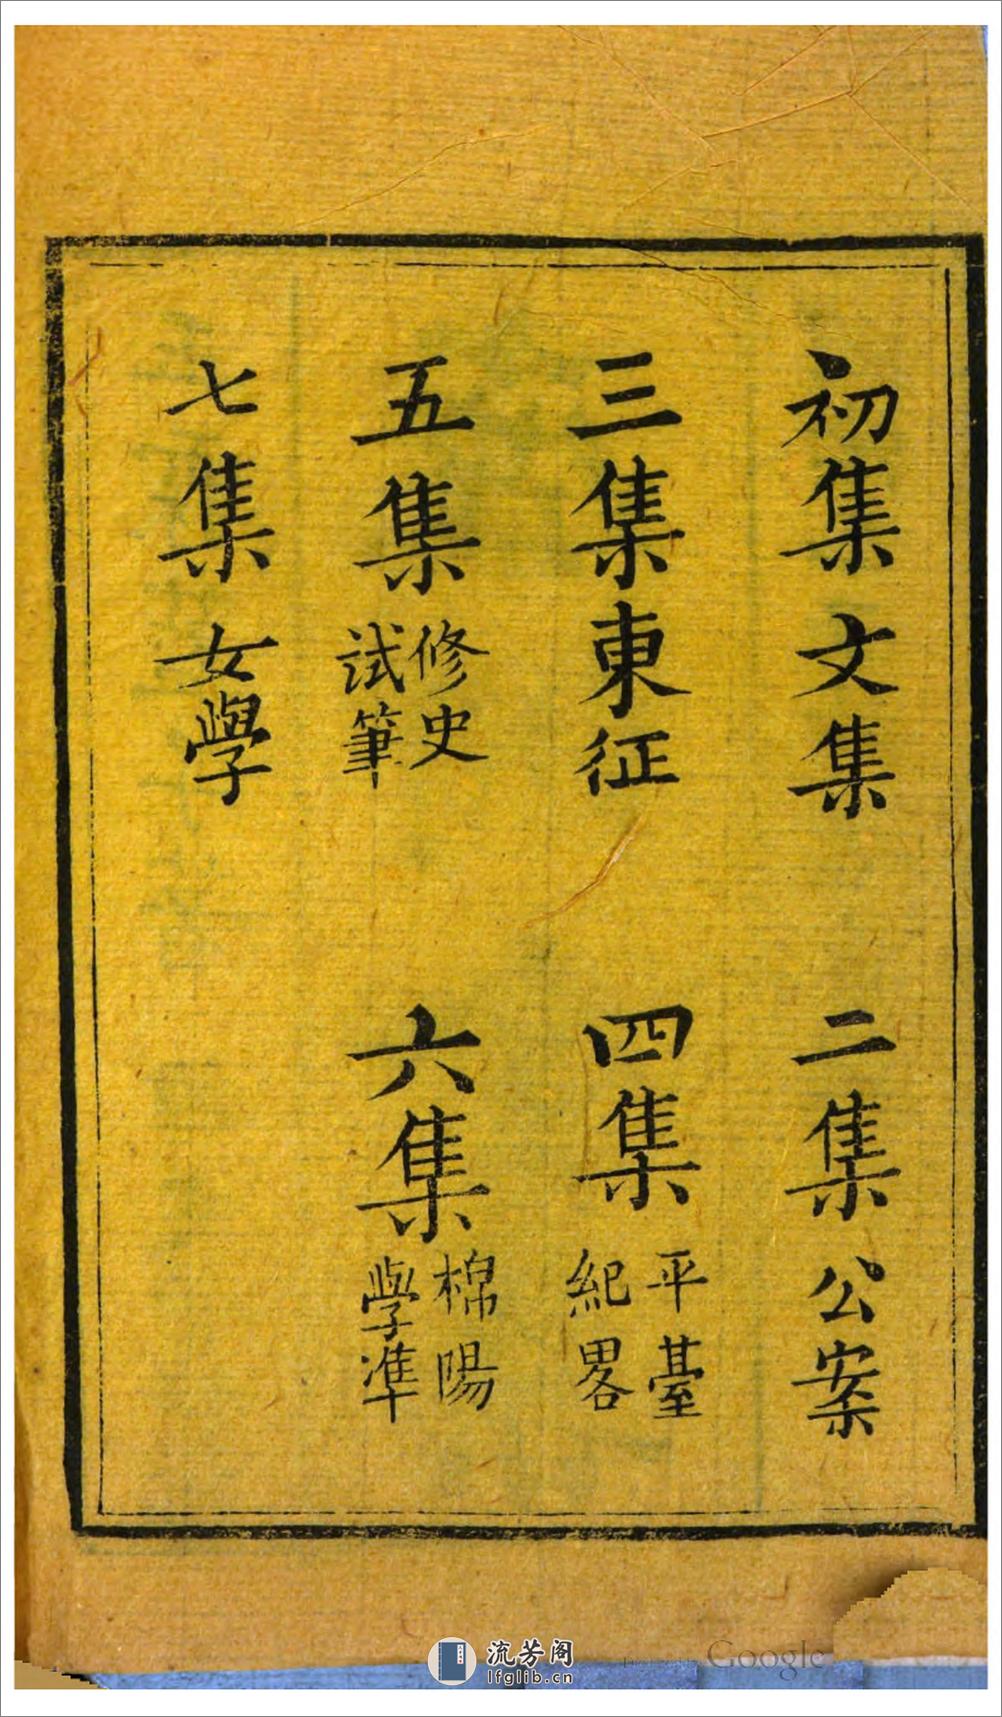 初集文集
二集公案
三集東征
四集平臺紀畧
五集修史試筆
六集棉陽學準
七集女學
流芳阁
lfglib.cn
Google